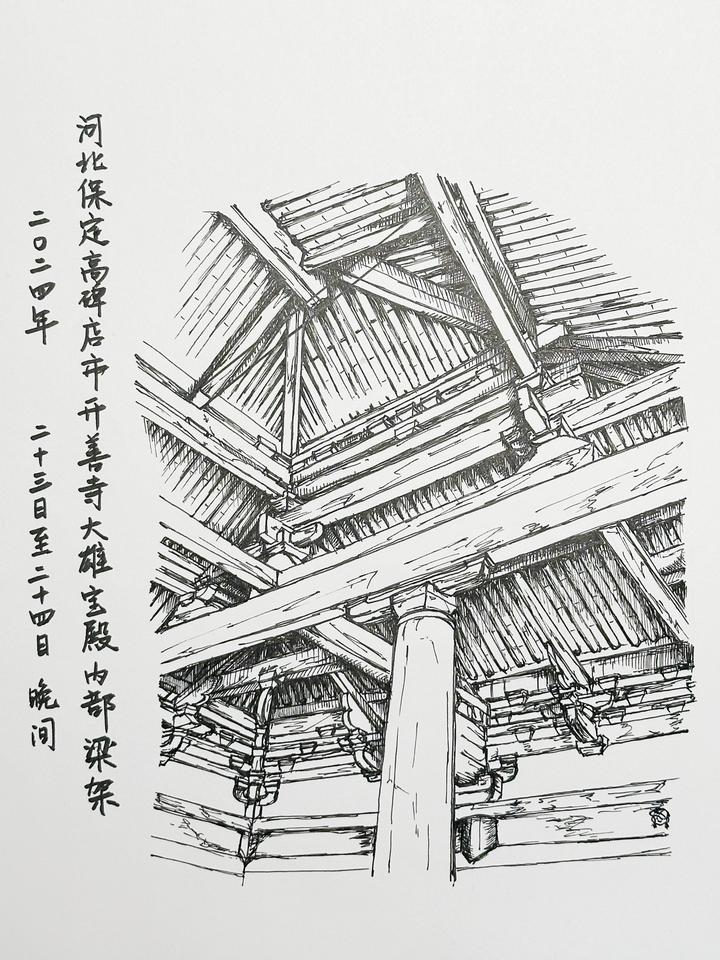 河北保定高碑店市开善寺大雄宝殿内部梁架
二〇二四年 二十三日至二十四日 晚间